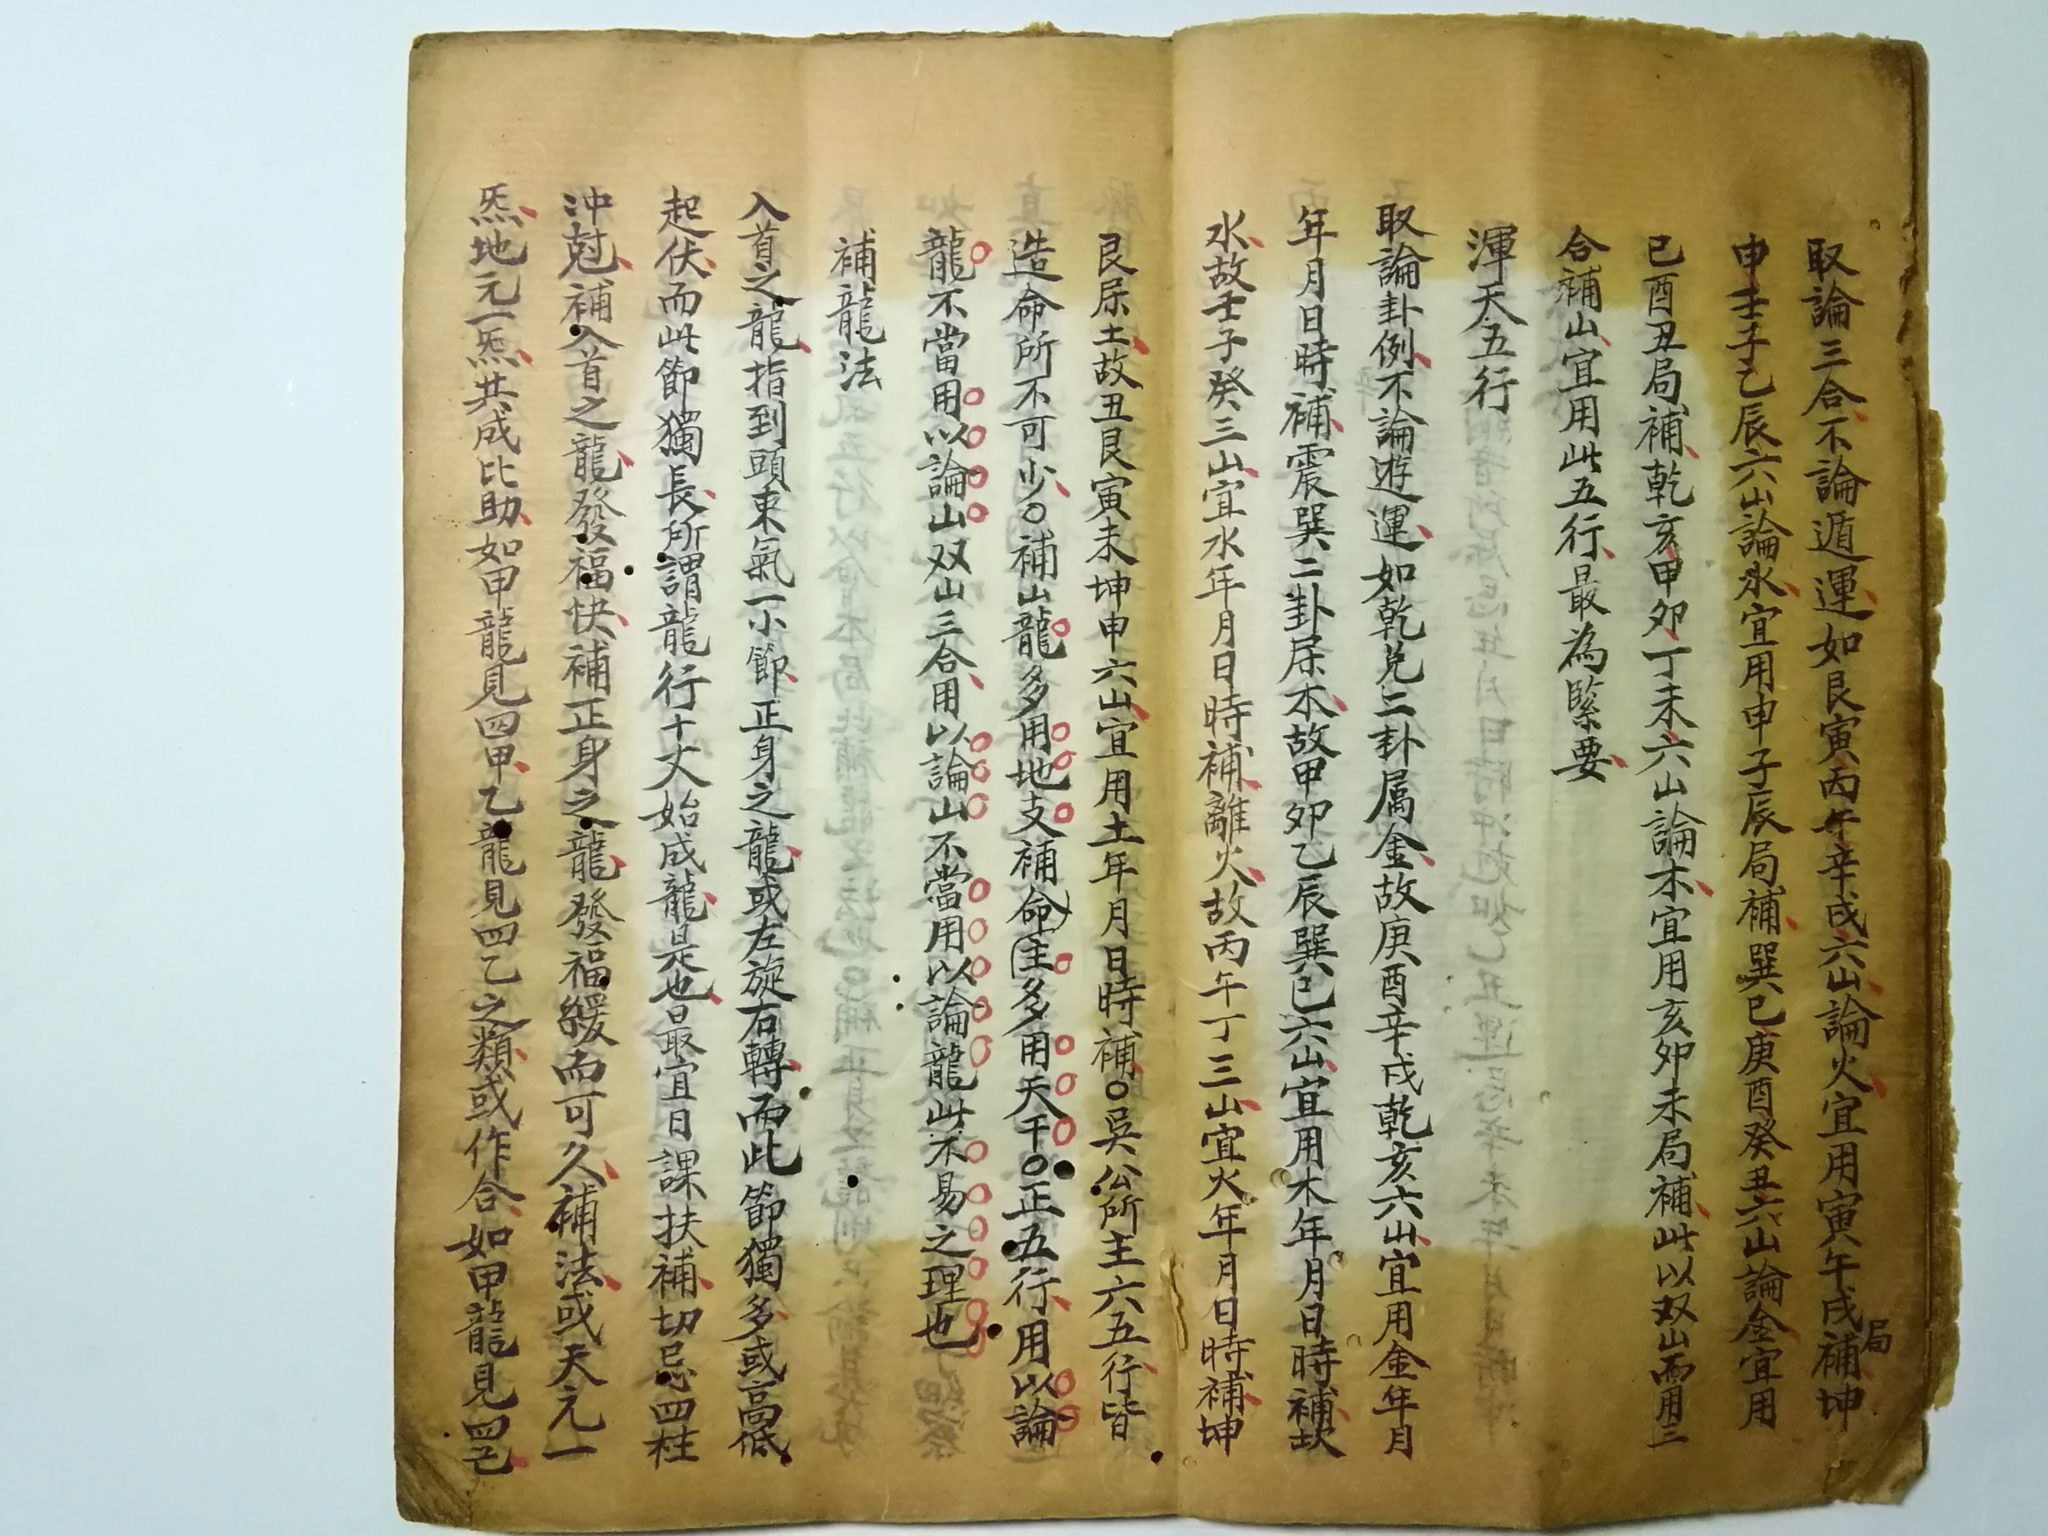 取論三合不論遁運如艮寅丙午辛戌六山論火宜用寅午戌局補坤
申壬子乙辰六山論水宜用申子辰局補巽巳庚酉癸丑六山論金宜用
巳酉丑局補乾亥甲卯丁未六山論木宜用亥卯未局補此以双山而用三
合補山宜用此五行最為緊要
渾天五行
取論卦例不論遊運如乾兌二卦属金故庚酉辛戌乾亥六山宜用金年月
年月日時補震巽二卦属木故甲卯乙辰巽巳六山宜用木年月日時補坎
水故壬子癸三山宜水年月日時補離火故丙午丁三山宜火年月日時補坤
艮属土故丑艮寅未坤申六山宜用土年月日時補〇吳公所主六五行皆
造命所不可少〇補山龍多用地支補命主多用天干〇正五行用以論
龍不當用以論山双山三合用以論山不當用以論龍此不易之理也
補龍法
入首之龍指到頭束氣一小節正身之龍或左旋右轉而此節獨多或高低
起伏而此節獨長所謂龍行十丈始成龍是也最宜日課扶補切忌四柱
沖尅補入首之龍發福快補正身之龍發福緩而可久補法或天元一
炁地元一炁共成比助如甲龍見四甲乙龍見四乙之類或作合如甲龍見四己